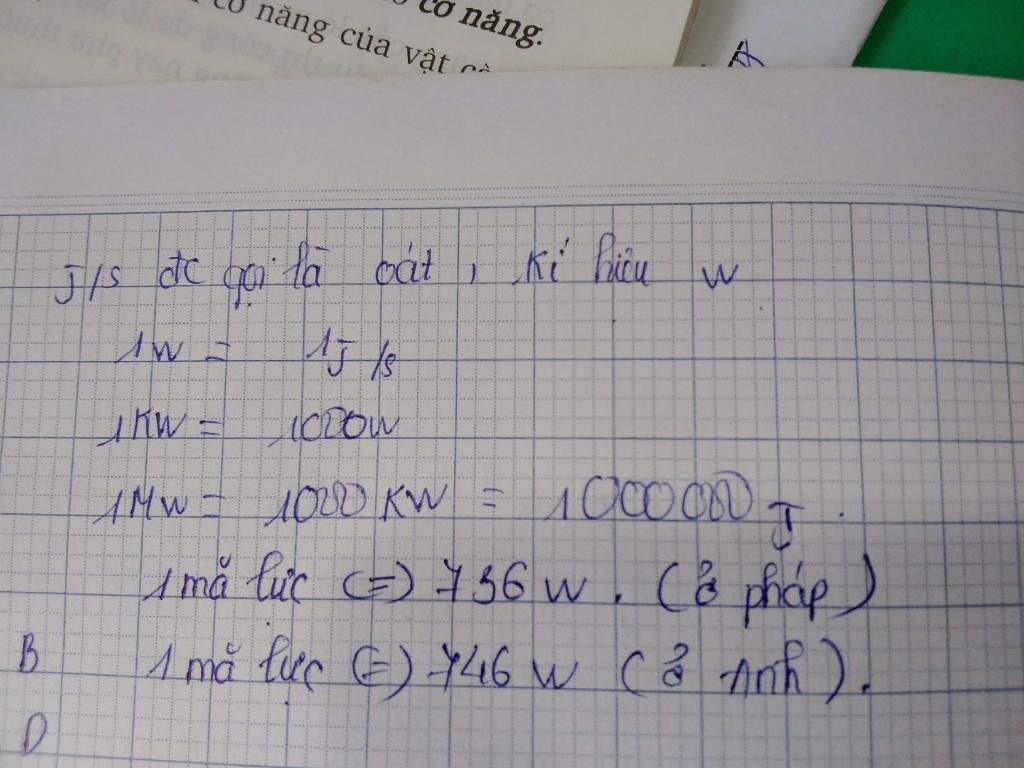 cơ năng.
cơ năng của vật
J/s đc gọi là oát, kí hiệu W
1W = 1J/s
1KW = 1000W
1MW = 1000KW = 1000000J.
1 mã lực (=) 736W. (ở pháp)
B 1 mã lực (=) 746W (ở Anh).
D